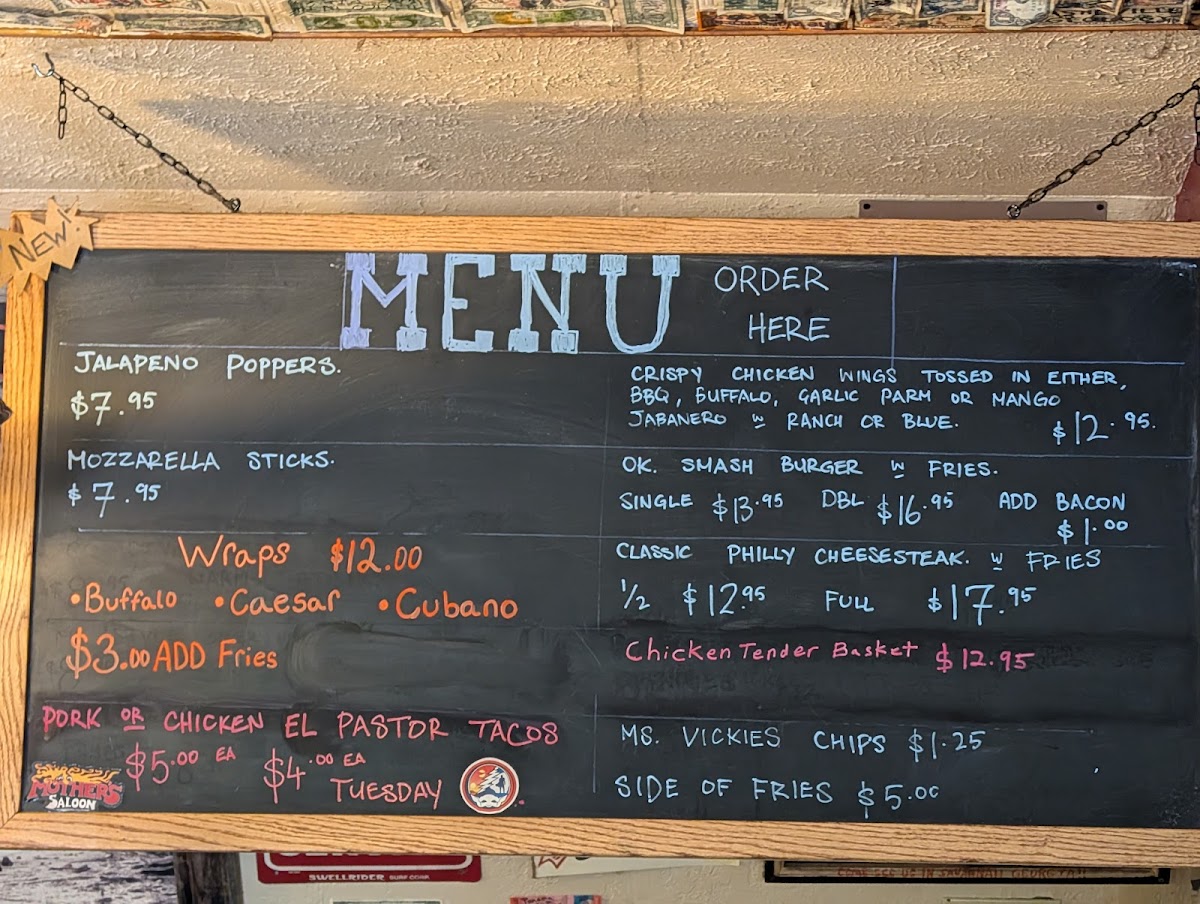 NEW!
MENU
ORDER
HERE
JALAPENO POPPERS.
$7.95
MOZZARELLA STICKS.
$7.95
Wraps $12.00
•Buffalo •Caesar •Cubano
$3.00 ADD Fries
PORK OR CHICKEN EL PASTOR TACOS
$5.00 EA $4.00 EA
TUESDAY
MOTHER'S
SALOON
CRISPY CHICKEN WINGS TOSSED IN EITHER,
BBQ, BUFFALO, GARLIC PARM OR MANGO
JABANERO W RANCH OR BLUE.
$12.95.
OK. SMASH BURGER W FRIES.
SINGLE $13.95 DBL $16.95 ADD BACON
$1.00
CLASSIC PHILLY CHEESESTEAK. W FRIES
1/2 $12.95 FULL $17.95
Chicken Tender Basket $12.95
MS. VICKIES CHIPS $1.25
SIDE OF FRIES $5.00
SWELLRIDER SURF CO.
COME SEE US IN SAVANNAH GEORGIA!!